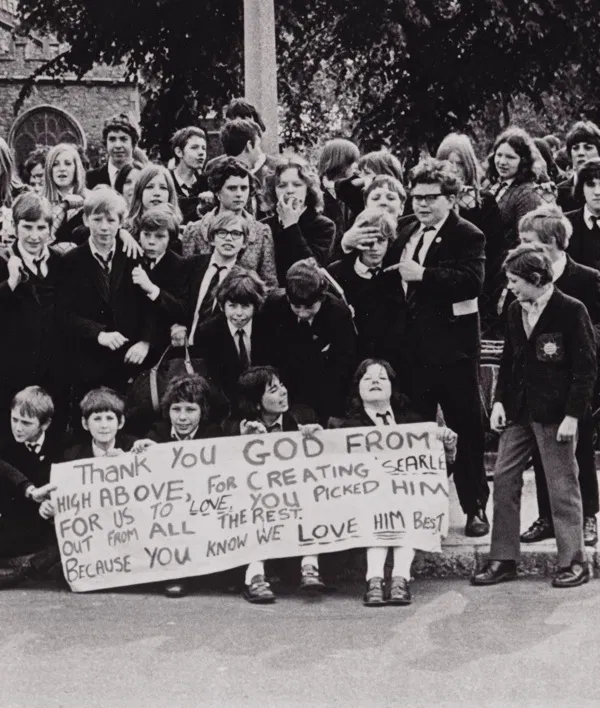 THANK YOU GOD FROM
HIGH ABOVE, FOR CREATING 'SEARLE
FOR US TO LOVE, YOU PICKED HIM
OUT FROM ALL THE REST.
BECAUSE YOU KNOW WE LOVE HIM BEST